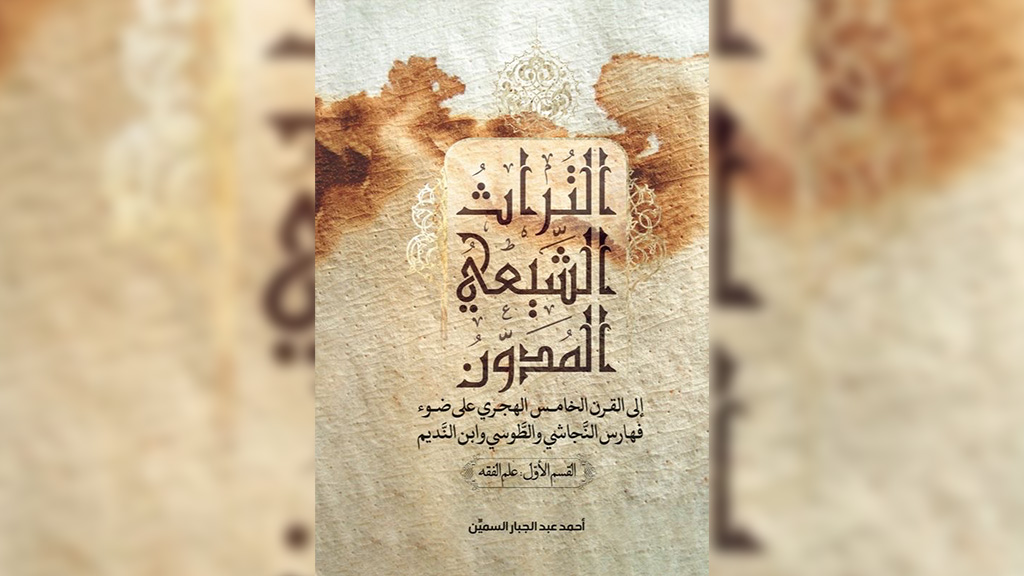 التُراثُ
الشَّيعيُ
المُدَوَّنُ
إلى القرن الخامس الهجري على ضوء
فهارس النَّجاشي والطَّوسي وابن النَّديم
القسم الأوّل: علم الفقه
أحمد عبد الجبار السميِّن